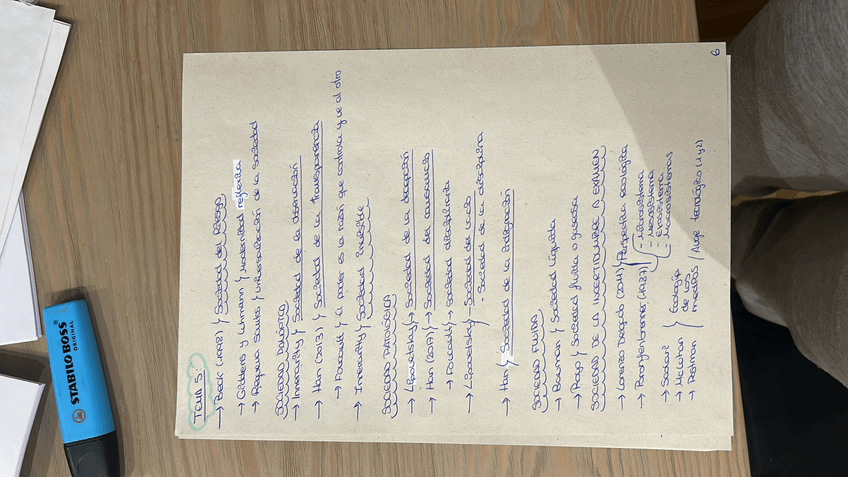 TEMA 5:
→ Beck (1998) } Sociedad del Riesgo
→ Giddens y Luhmann } Modernidad reflexiva
→ Requena Santos } Urbanización de la Sociedad
SOCIEDAD
→ Innerarity } Sociedad de la desinformación
→ Han (2013) } Sociedad de la transparencia
→ Foucault } El poder es la razón que controla y ve al otro
→ Innerarity } Sociedad Invisible
SOCIEDAD PATOLÓGICA
→ Lipovetsky } → Sociedad de la decepción
→ Han (2017) } → Sociedad del cansancio
→ Foucault } → Sociedad disciplinaria
→ Lipovetsky } - Sociedad del vacío
- Sociedad de la disciplina
→ Han } Sociedad de la Indignación
SOCIEDAD FLUIDA
→ Bauman } Sociedad líquida
→ } Sociedad fluida o gaseosa
SOCIEDAD DE LA INCERTIDUMBRE A EXAMEN
→ Lorenzo Delgado (2011) } Perspectiva ecológica
→ Bronfenbrenner (1987) } - Microsistema
- Mesosistema
- Exosistema
- Macrosistemas
→ Scolari } Ecología
→ McLuhan de los
→ Postman medios / Auge tecnológico (1 y 2)
6
STABILO BOSS
ORIGINAL